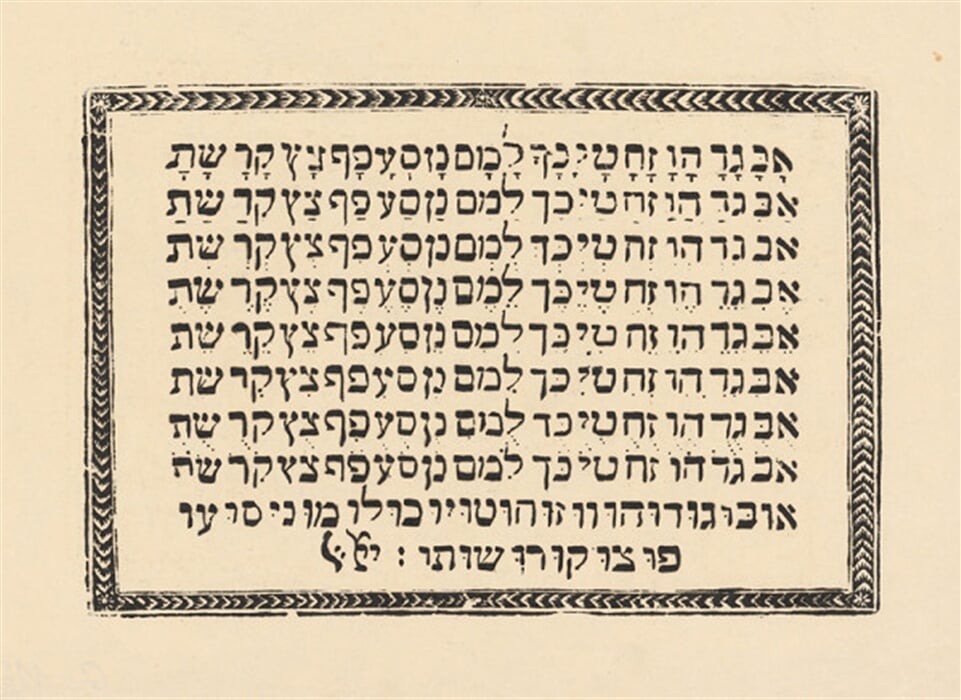 אב גד הו זח טי כך למם נן סע פף צץ קר שת
אב גד הו זח טי כך למם נן סע פף צץ קר שת
אב גד הו זח טי כך למם נן סע פף צץ קר שת
אב גד הו זח טי כך למם נן סע פף צץ קר שת
אב גד הו זח טי כך למם נן סע פף צץ קר שת
אב גד הו זח טי כך למם נן סע פף צץ קר שת
אב גד הו זח טי כך למם נן סע פף צץ קר שת
אב גד הו זח טי כך למם נן סע פף צץ קר שת
אובו גודו הו וו זו חוטויו כולו מו ני סו עו
פו צו קורו שותו :